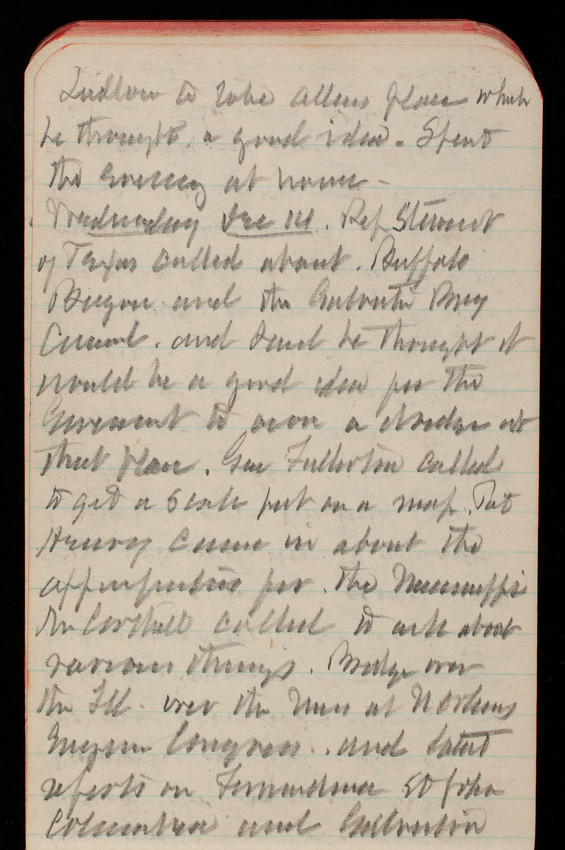 Ludlow to take Allens place which
he thought, a good idea. Spent
the evening at home -
Wednesday Dec 14. Rep Stewart
of Texas called about. Buffalo
Bayou and the Galveston Bay
Canal. and said he thought it
would be a good idea for the
Government to own a dredge at
that place. Gen Fullerton called
to get a scale put on a map. Pat
Henry came in about the
appropriation for. the Mississippi
Mr Corthell called to ask about
various things. Bridge over
the Ill. over the Miss at N Orleans
Congress.. and latest
reports on Fernandina St John
Columbia and Galveston